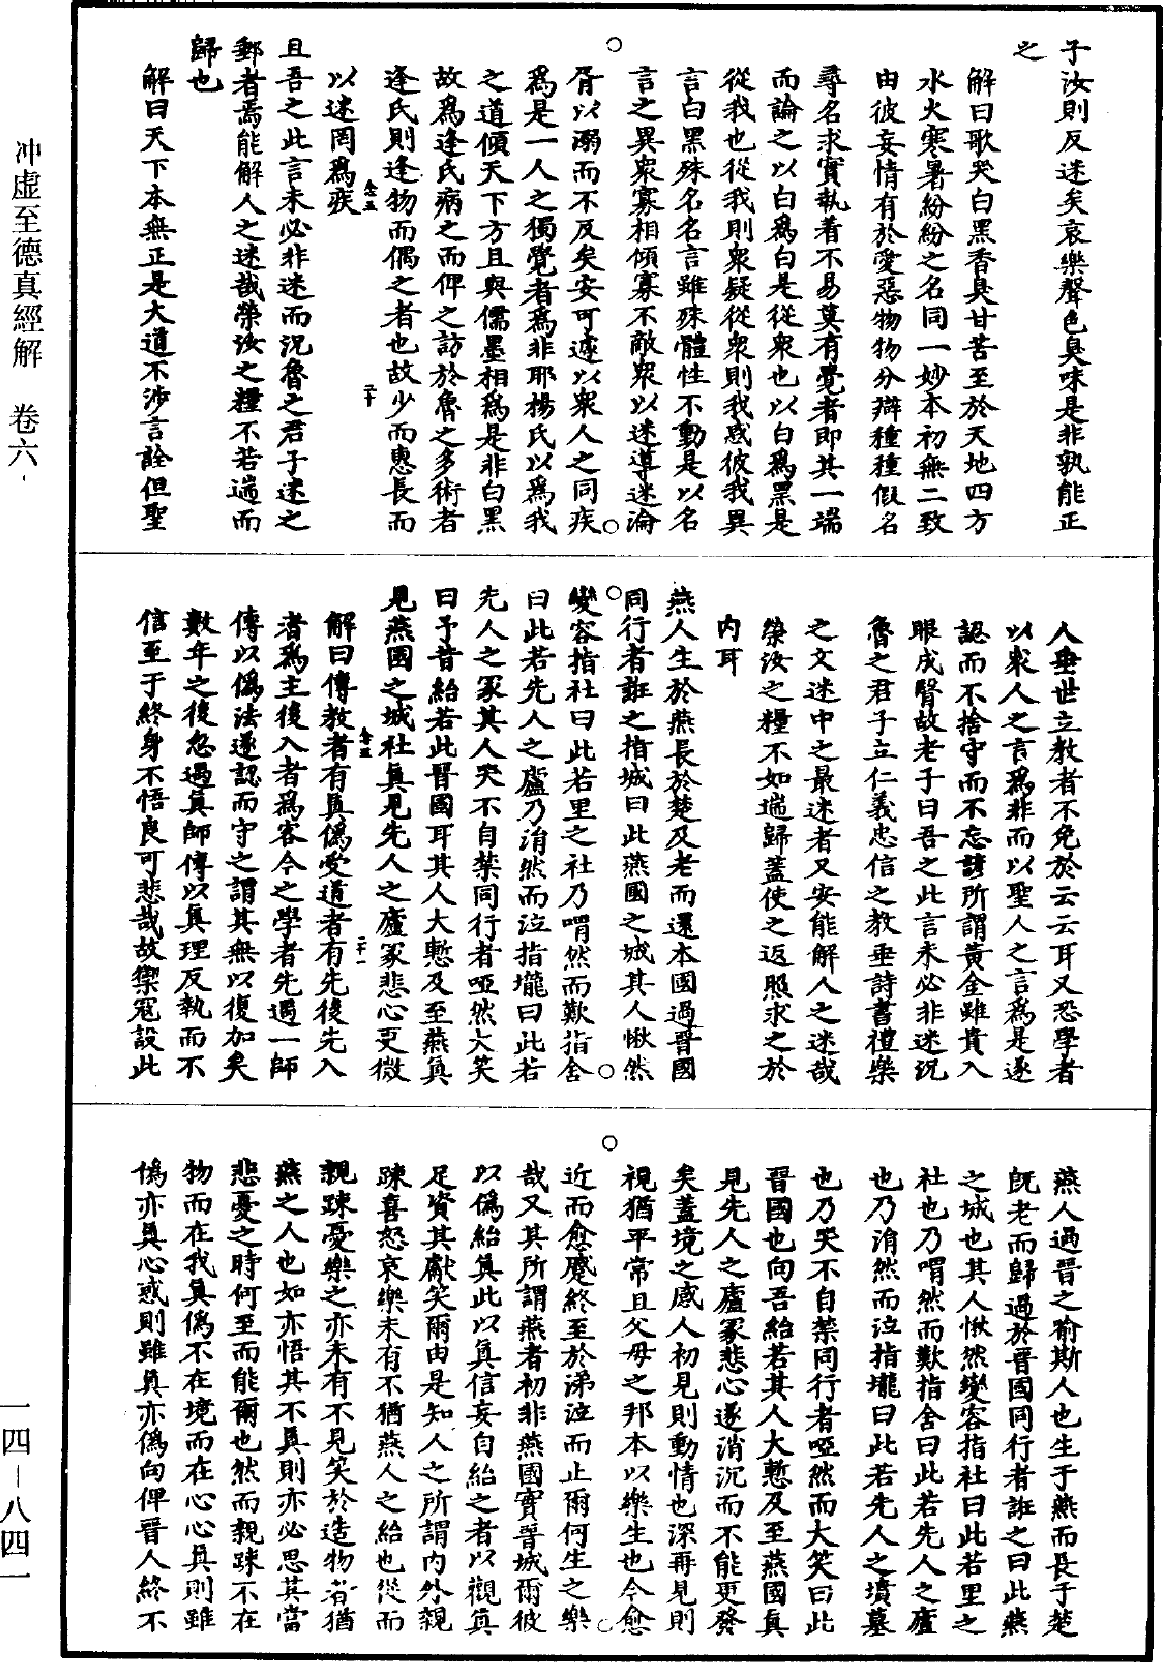 子汝則反迷矣哀樂聲色臭味是非孰能正
之
解曰歌哭白黑香臭甘苦至於天地四方
水火寒暑紛紛之名同一妙本初無二致
由彼妄情有於愛惡物物分辯種種假名
尋名求實執着不易莫有覺者即其一端
而論之以白爲白是從衆也以白爲黑是
從我也從我則衆疑從衆則我惑彼我異
言白黑殊名名言雖殊體性不動是以名
言之異衆寡相傾寡不敵衆以迷導迷淪
胥以溺而不反矣安可遽以衆人之同疾
爲是一人之獨覺者爲非耶楊氏以爲我
之道傾天下方且與儒墨相爲是非白黑
故爲逢氏病之而俾之訪於魯之多術者
逢氏則逢物而偶之者也故少而惠長而
以迷罔爲疾
且吾之此言未必非迷而況魯之君子迷之
郵者焉能解人之迷哉榮汝之糧不若遄而
歸也
解曰天下本無正是大道不涉言詮但聖
人垂世立教者不免於云云耳又恐學者
以衆人之言爲非而以聖人之言爲是遂
認而不捨守而不忘諺所謂黃金雖貴入
眼成瞖故老子曰吾之此言未必非迷況
魯之君子立仁義忠信之教垂詩書禮樂
之文迷中之最迷者又安能解人之迷哉
榮汝之糧不如遄歸蓋使之返照求之於
内耳
燕人生於燕長於楚及老而還本國過晉國
同行者誑之指城曰此燕國之城其人愀然
變容指社曰此若里之社乃喟然而歎指舍
曰此若先人之廬乃涓然而泣指壠曰此若
先人之冢其人哭不自禁同行者啞然大笑
曰予昔紿若此晉國耳其人大慙及至燕真
見燕國之城社真見先人之廬冢悲心更微
解曰傳教者有真僞受道者有先後先入
者爲主後入者爲客今之學者先遇一師
傳以僞法遂認而守之謂其無以復加矣
數年之後忽遇真師傳以真理反執而不
信至于終身不悟良可悲哉故禦寇設此
燕人過晉之喻斯人也生于燕而長于楚
既老而歸過於晉國同行者誑之曰此燕
之城也其人愀然變容指社曰此若里之
社也乃喟然而歎指舍曰此若先人之廬
也乃涓然而泣指壠曰此若先人之墳墓
也乃哭不自禁同行者啞然而大笑曰此
晉國也向吾紿若其人大慙及至燕國真
見先人之廬冢悲心遂消沉而不能更發
矣蓋境之感人初見則動情也深再見則
視猶平常且父母之邦本以樂生也今愈
近而愈慼終至於涕泣而止爾何生之樂
哉又其所謂燕者初非燕國實晉城爾彼
以僞紿真此以真信妄自紿之者以觀真
足資其歡笑爾由是知人之所謂内外親
踈喜怒哀樂未有不猶燕人之紿也從而
親踈憂樂之亦未有不見笑於造物者猶
燕之人也如亦悟其不真則亦必思其當
悲憂之時何至而能爾也然而親踈不在
物而在我真僞不在境而在心心真則雖
僞亦真心惑則雖真亦僞向俾晉人終不
冲虛至德真經解　卷六
一四－八四一